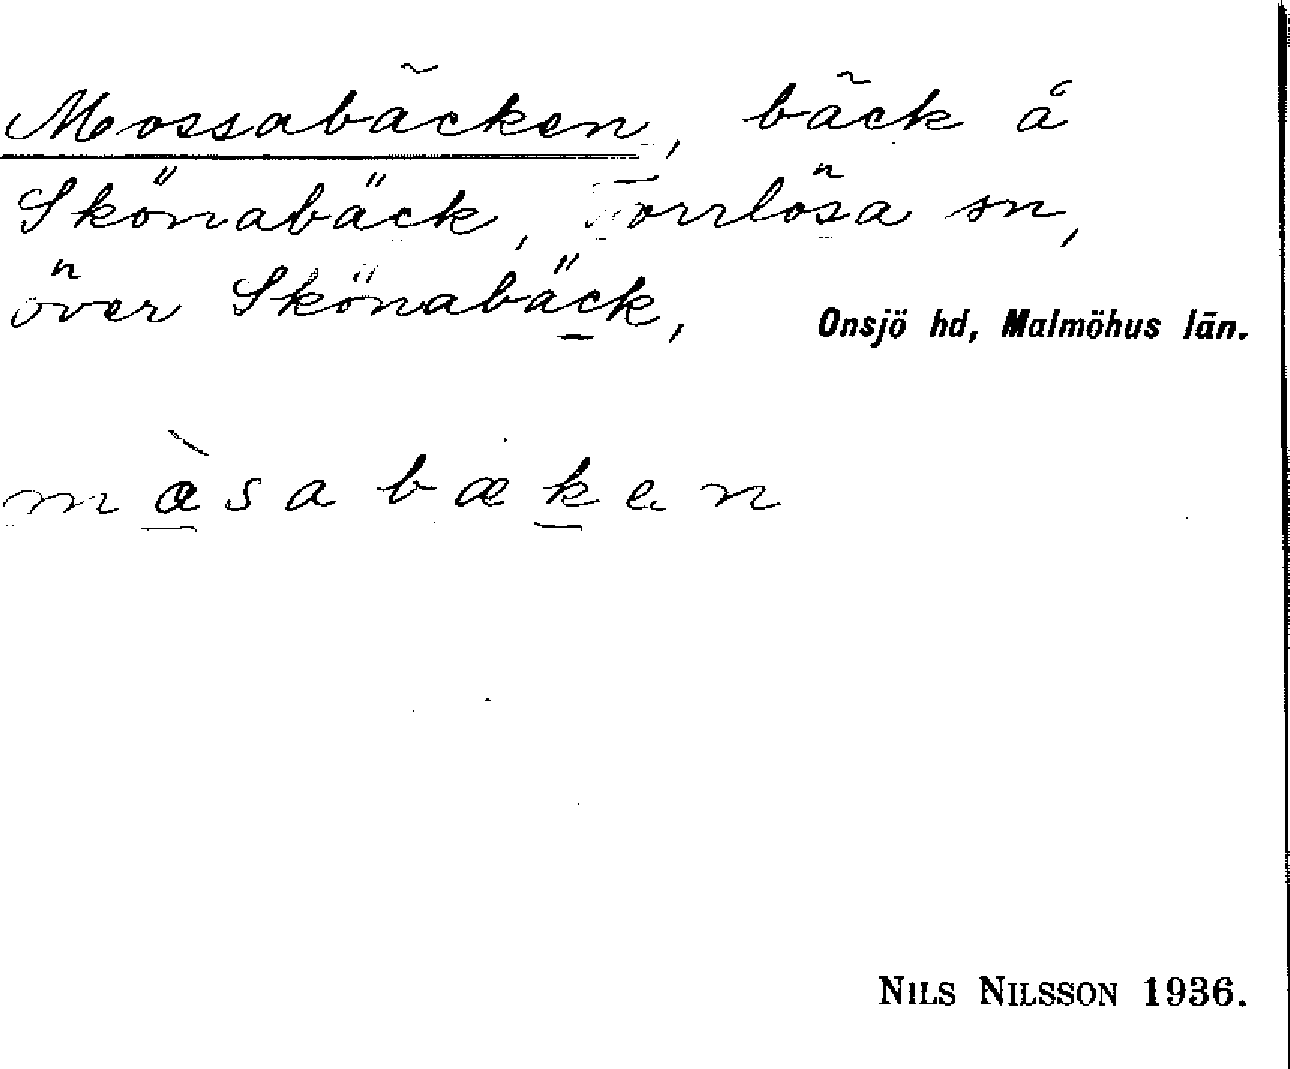 Mossabäcken, bäck å
Skönabäck, Torrlösa sn,
över Skönabäck,
Onsjö hd, Malmöhus län.
màsabæken
NILS NILSSON 1936.